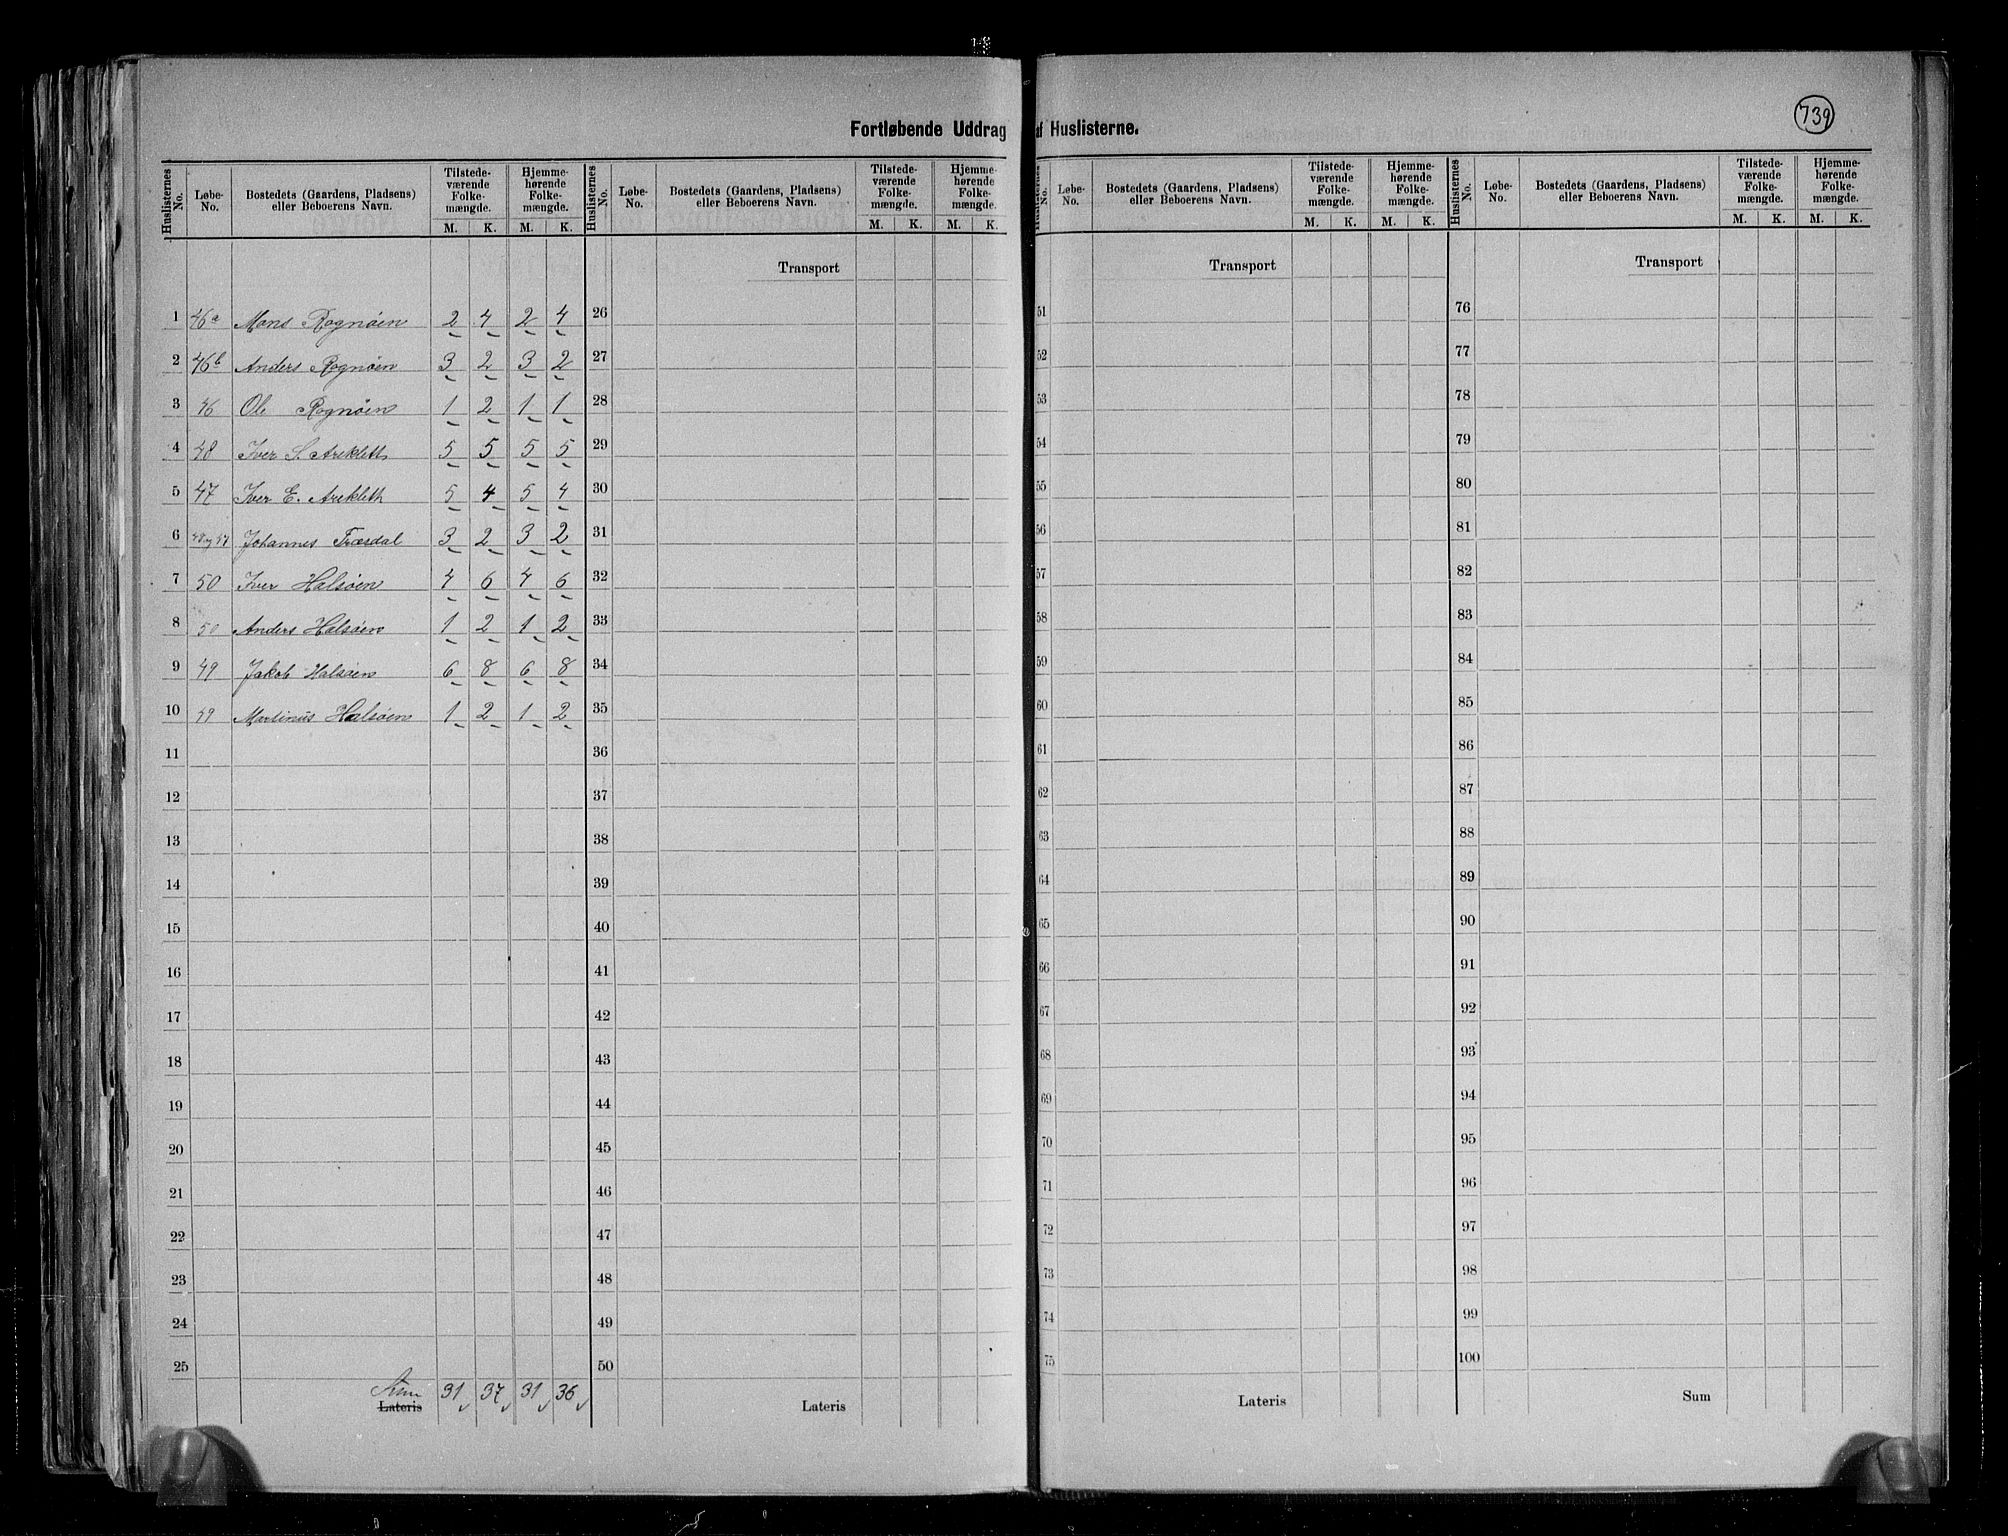 739
Fortløbende Uddrag af Huslisterne.
Huslisternes No. | Løbe-No. | Bostedets (Gaardens, Pladsens) eller Beboerens Navn. | Tilstede-værende Folke-mængde. M. K. | Hjemme-hørende Folke-mængde. M. K.
Huslisternes No. | Løbe-No. | Bostedets (Gaardens, Pladsens) eller Beboerens Navn. | Tilstede-værende Folke-mængde. M. K. | Hjemme-hørende Folke-mængde. M. K.
Huslisternes No. | Løbe-No. | Bostedets (Gaardens, Pladsens) eller Beboerens Navn. | Tilstede-værende Folke-mængde. M. K. | Hjemme-hørende Folke-mængde. M. K.
Huslisternes No. | Løbe-No. | Bostedets (Gaardens, Pladsens) eller Beboerens Navn. | Tilstede-værende Folke-mængde. M. K. | Hjemme-hørende Folke-mængde. M. K.
1 46a Mons Rognøen 2 4 2 4
2 46b Anders Rognøen 3 2 3 2
3 46 Ole Rognøen 1 2 1 1
4 48 Iver S. Arekleth 5 5 5 5
5 47 Iver E. Arekleth 5 4 5 4
6 Johannes Træsdal 3 2 3 2
7 50 Iver Halsøen 4 6 4 6
8 50 Anders Halsøen 1 2 1 2
9 49 Jakob Halsøen 6 8 6 8
10 49 Martinus Halsøen 1 2 1 2
11
12
13
14
15
16
17
18
19
20
21
22
23
24
25
Sum 31 37 31 36
Lateris
Transport
26
27
28
29
30
31
32
33
34
35
36
37
38
39
40
41
42
43
44
45
46
47
48
49
50
Lateris
Transport
51
52
53
54
55
56
57
58
59
60
61
62
63
64
65
66
67
68
69
70
71
72
73
74
75
Lateris
Transport
76
77
78
79
80
81
82
83
84
85
86
87
88
89
90
91
92
93
94
95
96
97
98
99
100
Sum